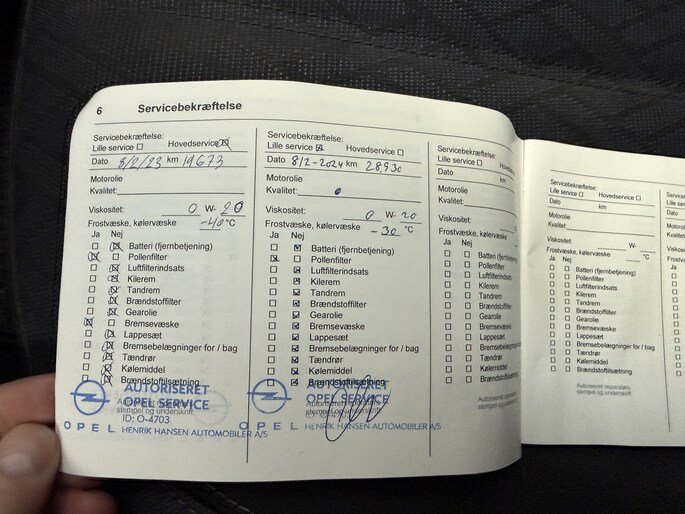 6 Servicebekræftelse
Servicebekræftelse:
Lille service Hovedservice
Dato 8/2/23 km 19673
Motorolie
Kvalitet:
Viskositet: 0 W- 20
Frostvæske, kølervæske -40 °C
Ja Nej
Batteri (fjernbetjening)
Pollenfilter
Luftfilterindsats
Kilerem
Tandrem
Brændstoffilter
Gearolie
Bremsevæske
Lappesæt
Bremsebelægninger for / bag
Tændrør
Kølemiddel
Brændstoftilsætning
AUTORISERET
OPEL SERVICE
stempel og underskrift
ID: O-4703
OPEL HENRIK HANSEN AUTOMOBILER A/S
Servicebekræftelse:
Lille service Hovedservice
Dato 8/2-2024 km 28930
Motorolie
Kvalitet:
Viskositet: 0 W- 20
Frostvæske, kølervæske -30 °C
Ja Nej
Batteri (fjernbetjening)
Pollenfilter
Luftfilterindsats
Kilerem
Tandrem
Brændstoffilter
Gearolie
Bremsevæske
Lappesæt
Bremsebelægninger for / bag
Tændrør
Kølemiddel
Brændstoftilsætning
AUTORISERET
OPEL SERVICE
stempel og underskrift
OPEL HENRIK HANSEN AUTOMOBILER A/S
Servicebekræftelse:
Lille service
Dato km
Motorolie
Kvalitet:
Viskositet:
Frostvæske, kølervæske
Ja Nej
Batteri (fjernbetjening)
Pollenfilter
Luftfilterindsats
Kilerem
Tandrem
Brændstoffilter
Gearolie
Bremsevæske
Lappesæt
Bremsebelægninger
Tændrør
Kølemiddel
Brændstoftilsætning
stempel og underskrift
Servicebekræftelse:
Lille service Hovedservice
Dato km
Motorolie
Kvalitet:
Viskositet: W-
Frostvæske, kølervæske °C
Ja Nej
Batteri (fjernbetjening)
Pollenfilter
Luftfilterindsats
Kilerem
Tandrem
Brændstoffilter
Gearolie
Bremsevæske
Lappesæt
Bremsebelægninger for / bag
Tændrør
Kølemiddel
Brændstoftilsætning
Autoriseret reparatørs
stempel og underskrift